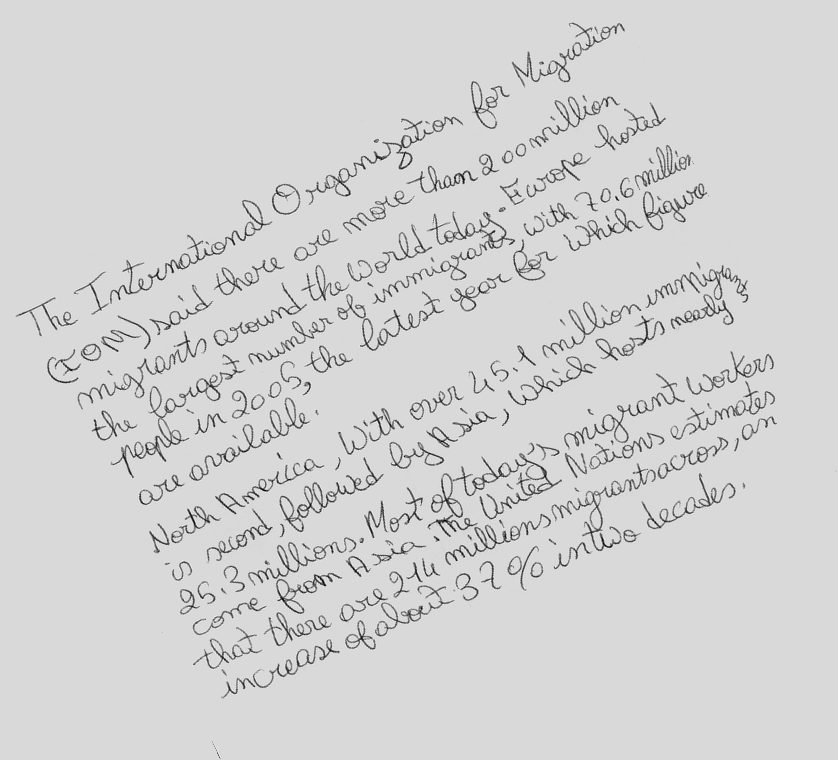 The International Organization for Migration
(IOM) said there are more than 200 million
migrants around the world today. Europe hosted
the largest number of immigrants, with 70.6 million
people in 2005, the latest year for which figure
are available.
North America, With over 45.1 million immigrants
is second, followed by Asia, which hosts nearly
25.3 millions. Most of today's migrant workers
come from Asia. The United Nations estimates
that there are 214 millions migrants across, an
increase of about 37% in two decades.